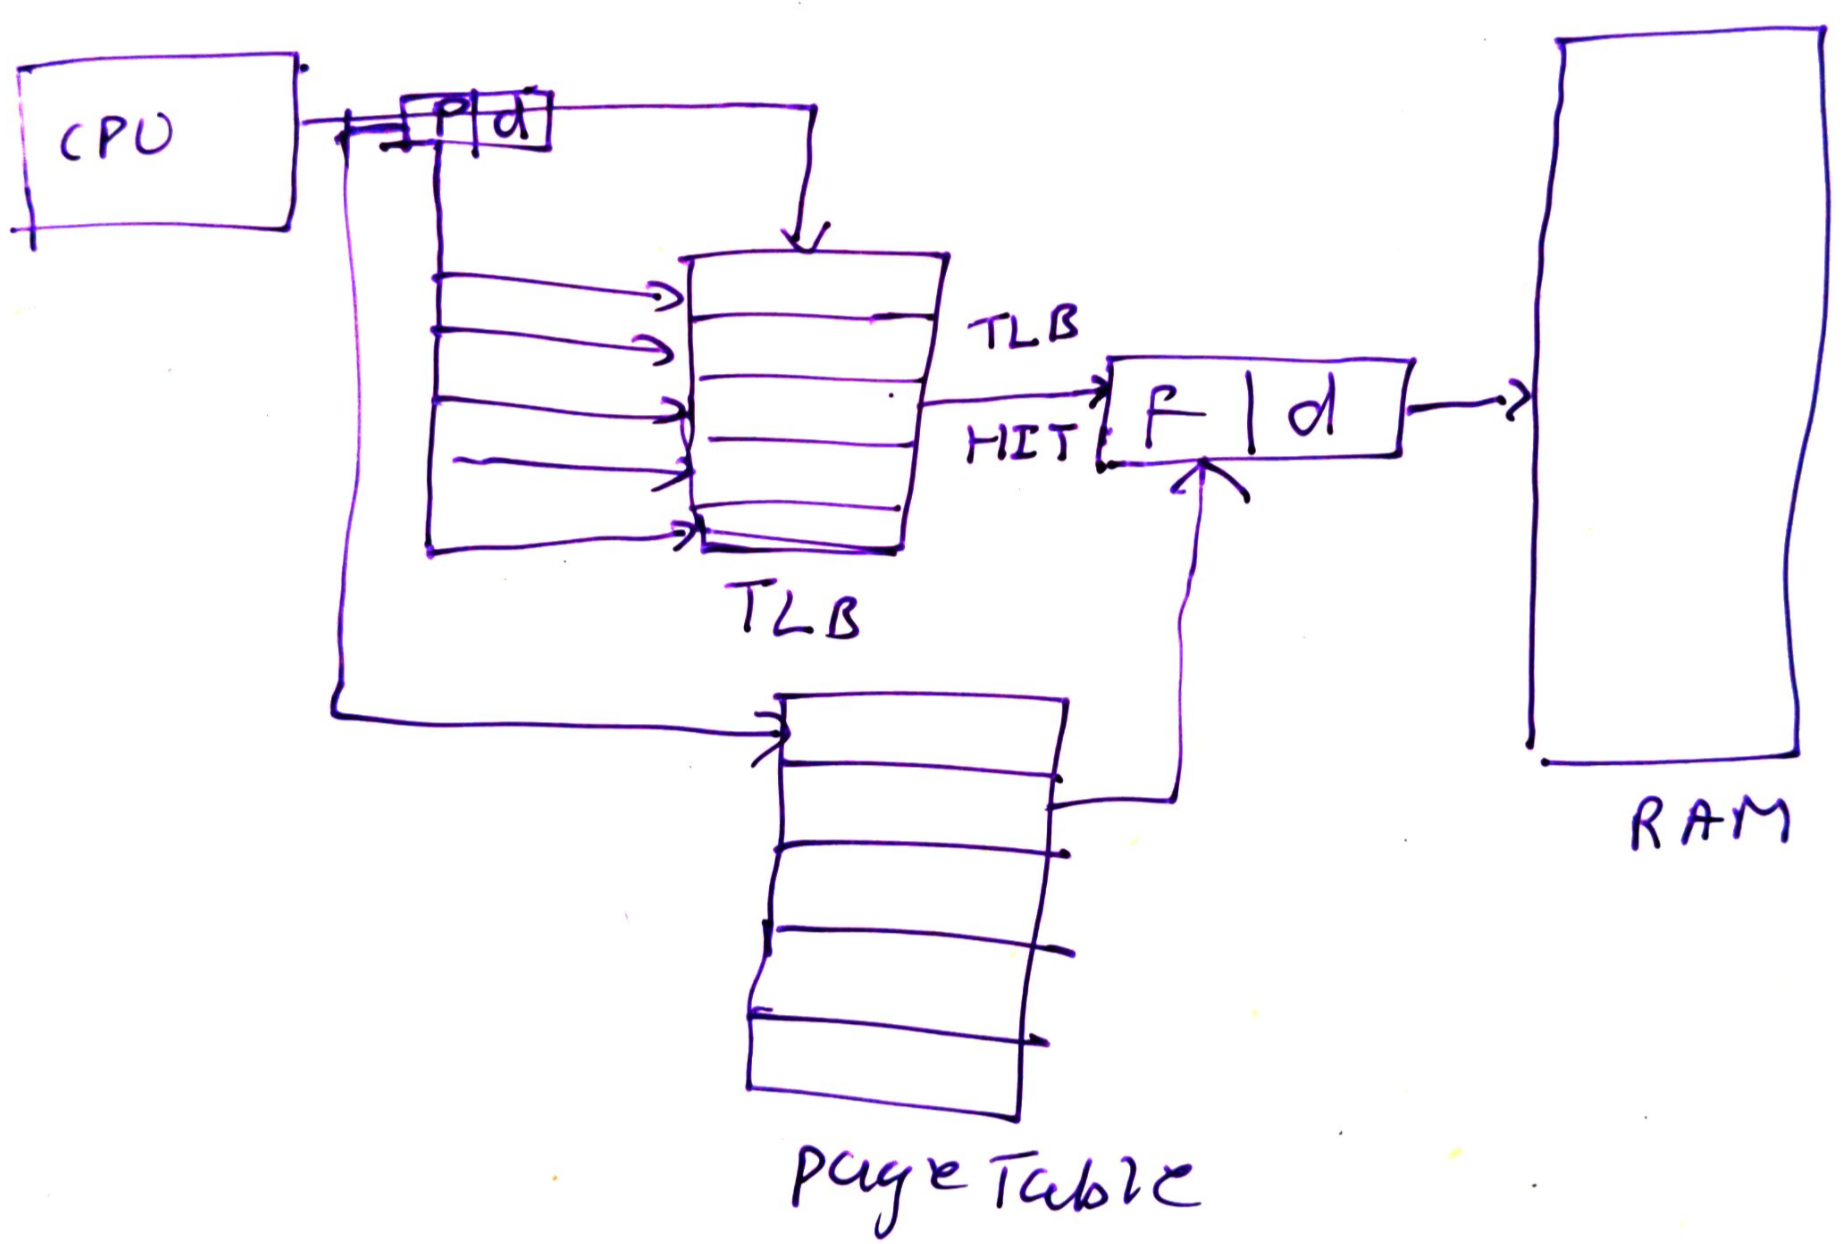 CPU
P d
TLB
HIT
F d
TLB
RAM
page Table